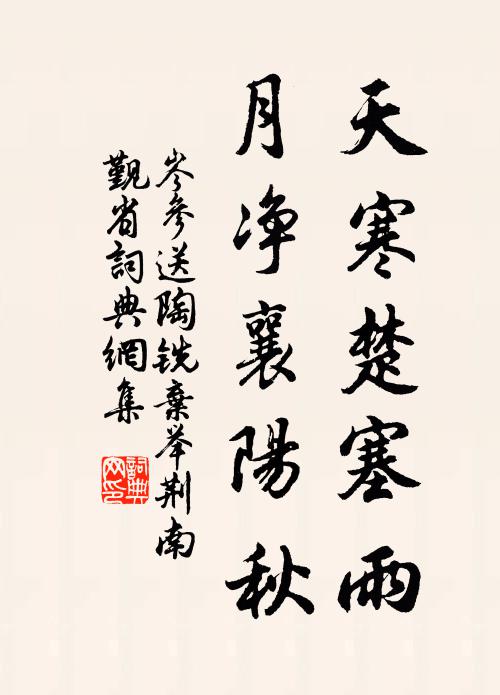 天寒楚塞雨
月净襄陽秋
岑參送陶銑棄举荆南
觐省詞典網集
詞典
网印